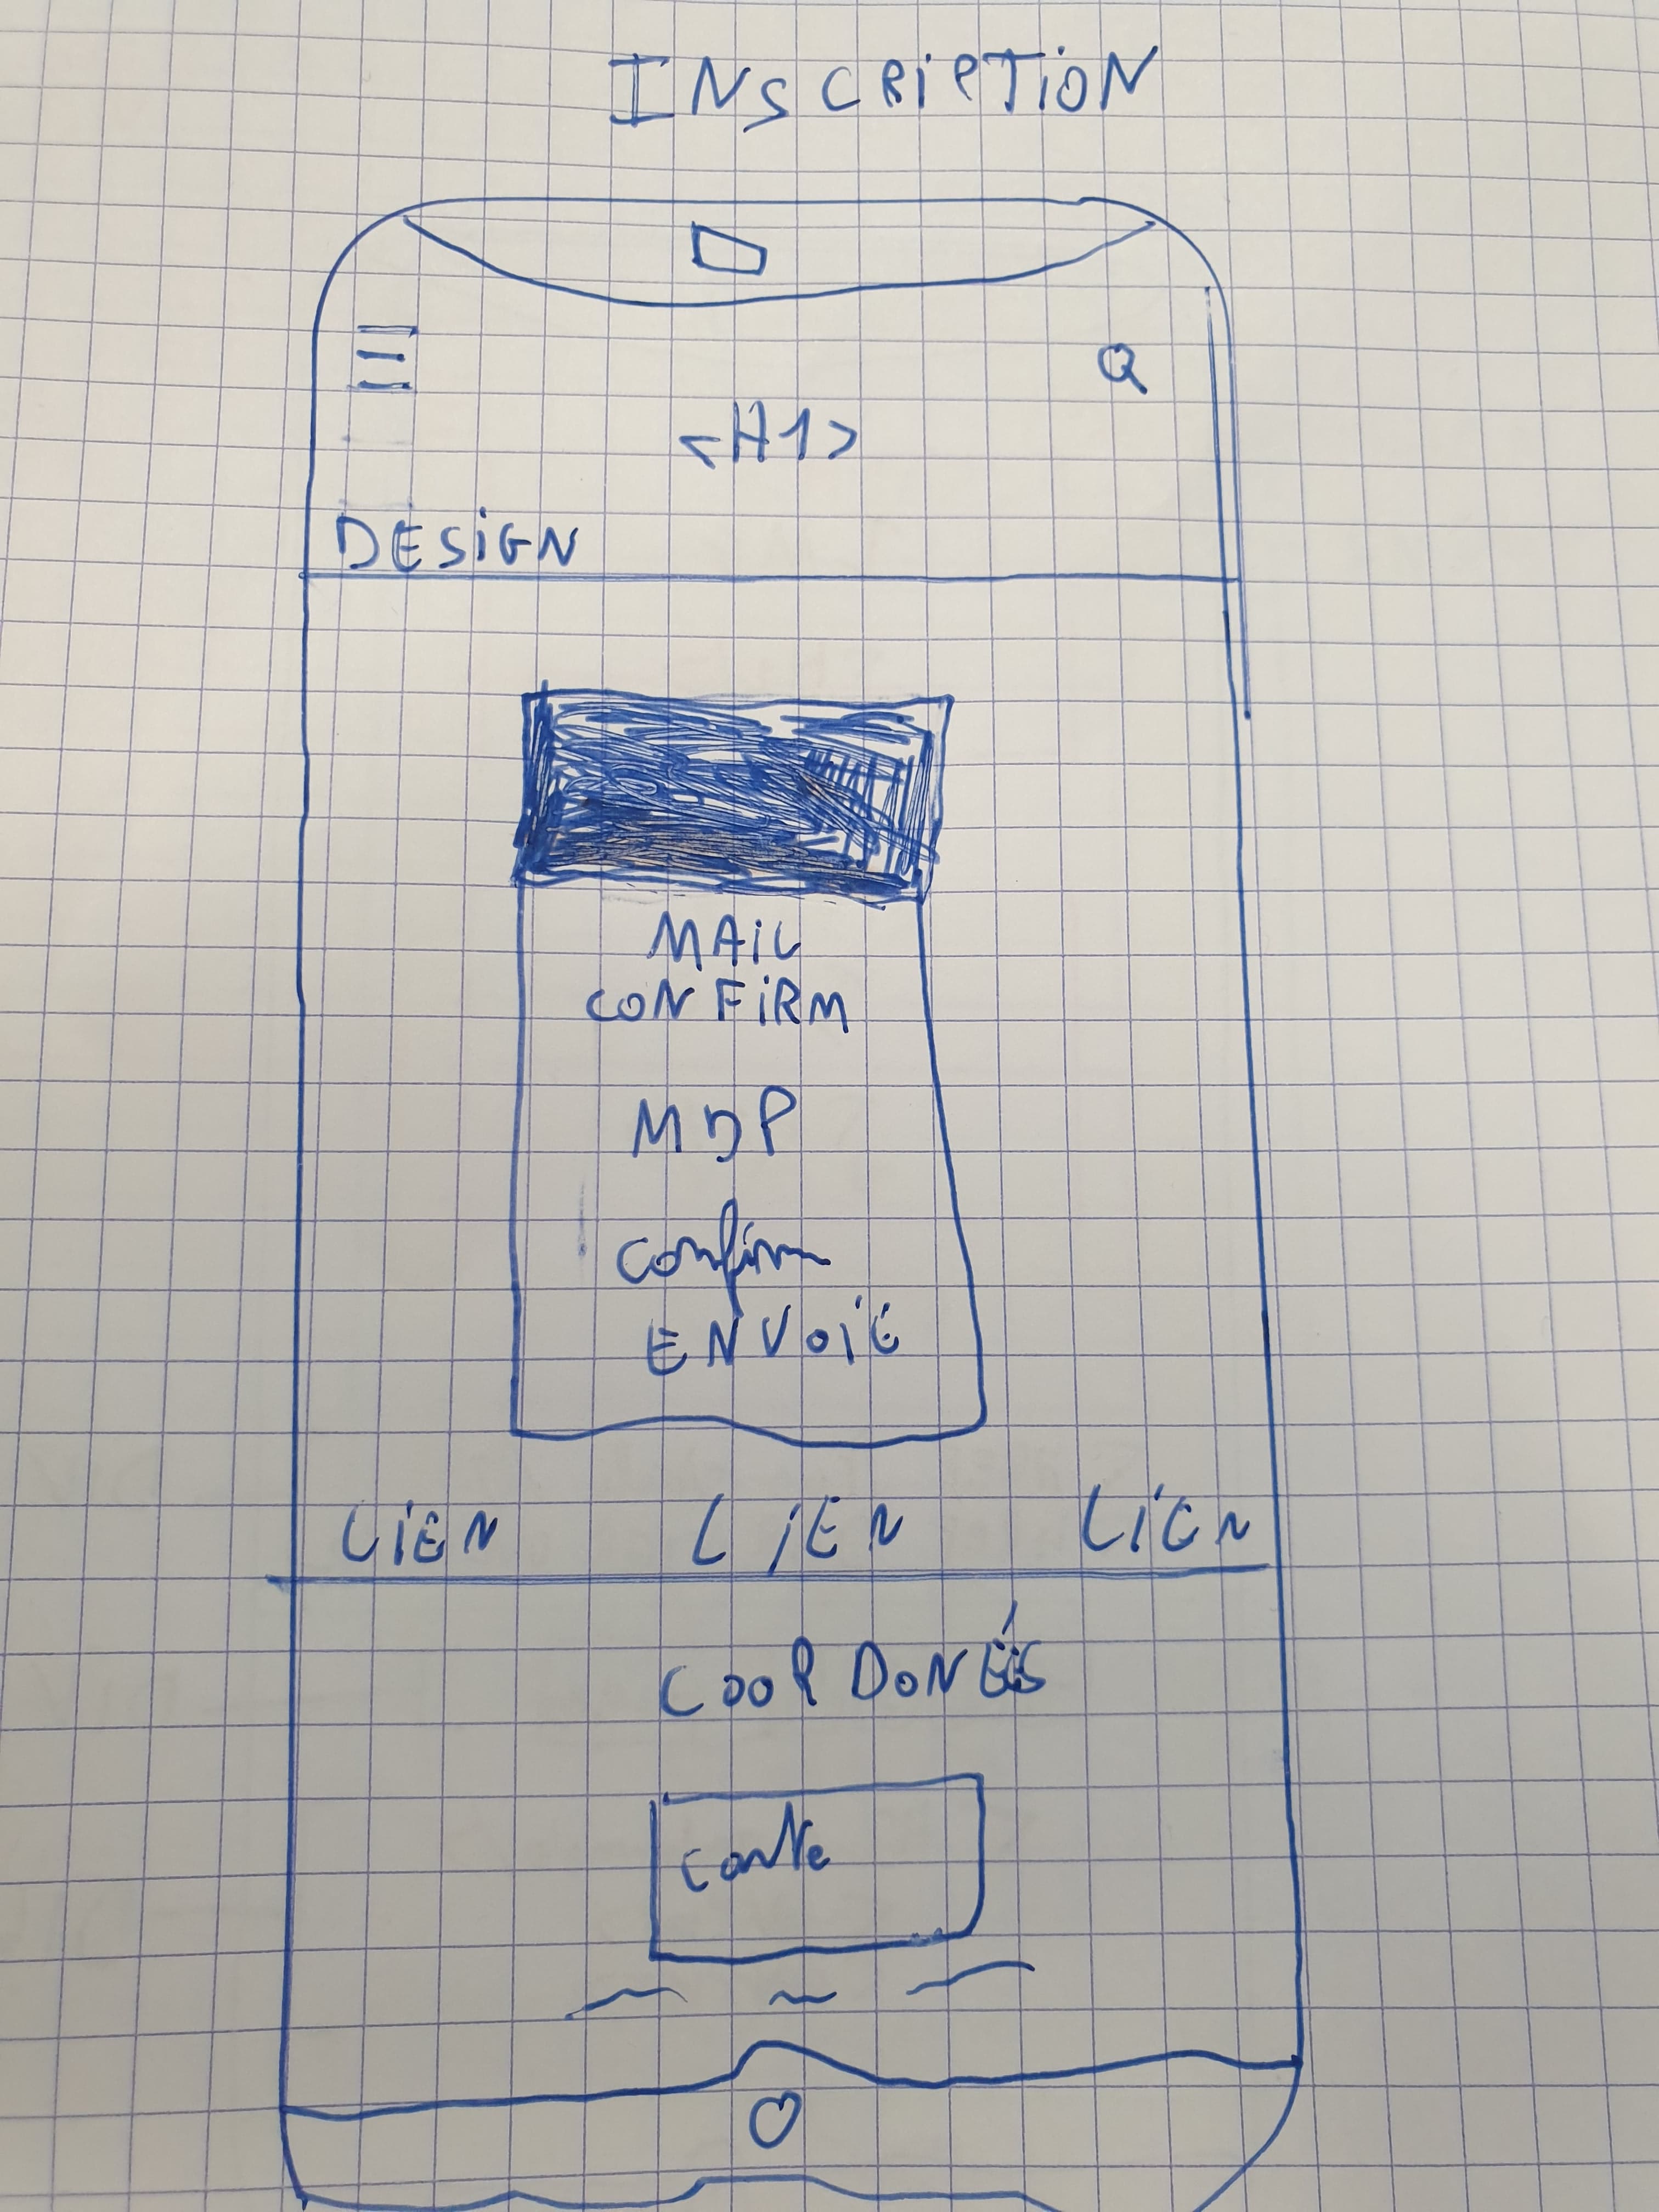 INSCRIPTION
<H1>
DESIGN
MAIL
CONFIRM
MDP
Confirm
ENVOIE
LIEN LIEN LIEN
COORDONÉS
Carte